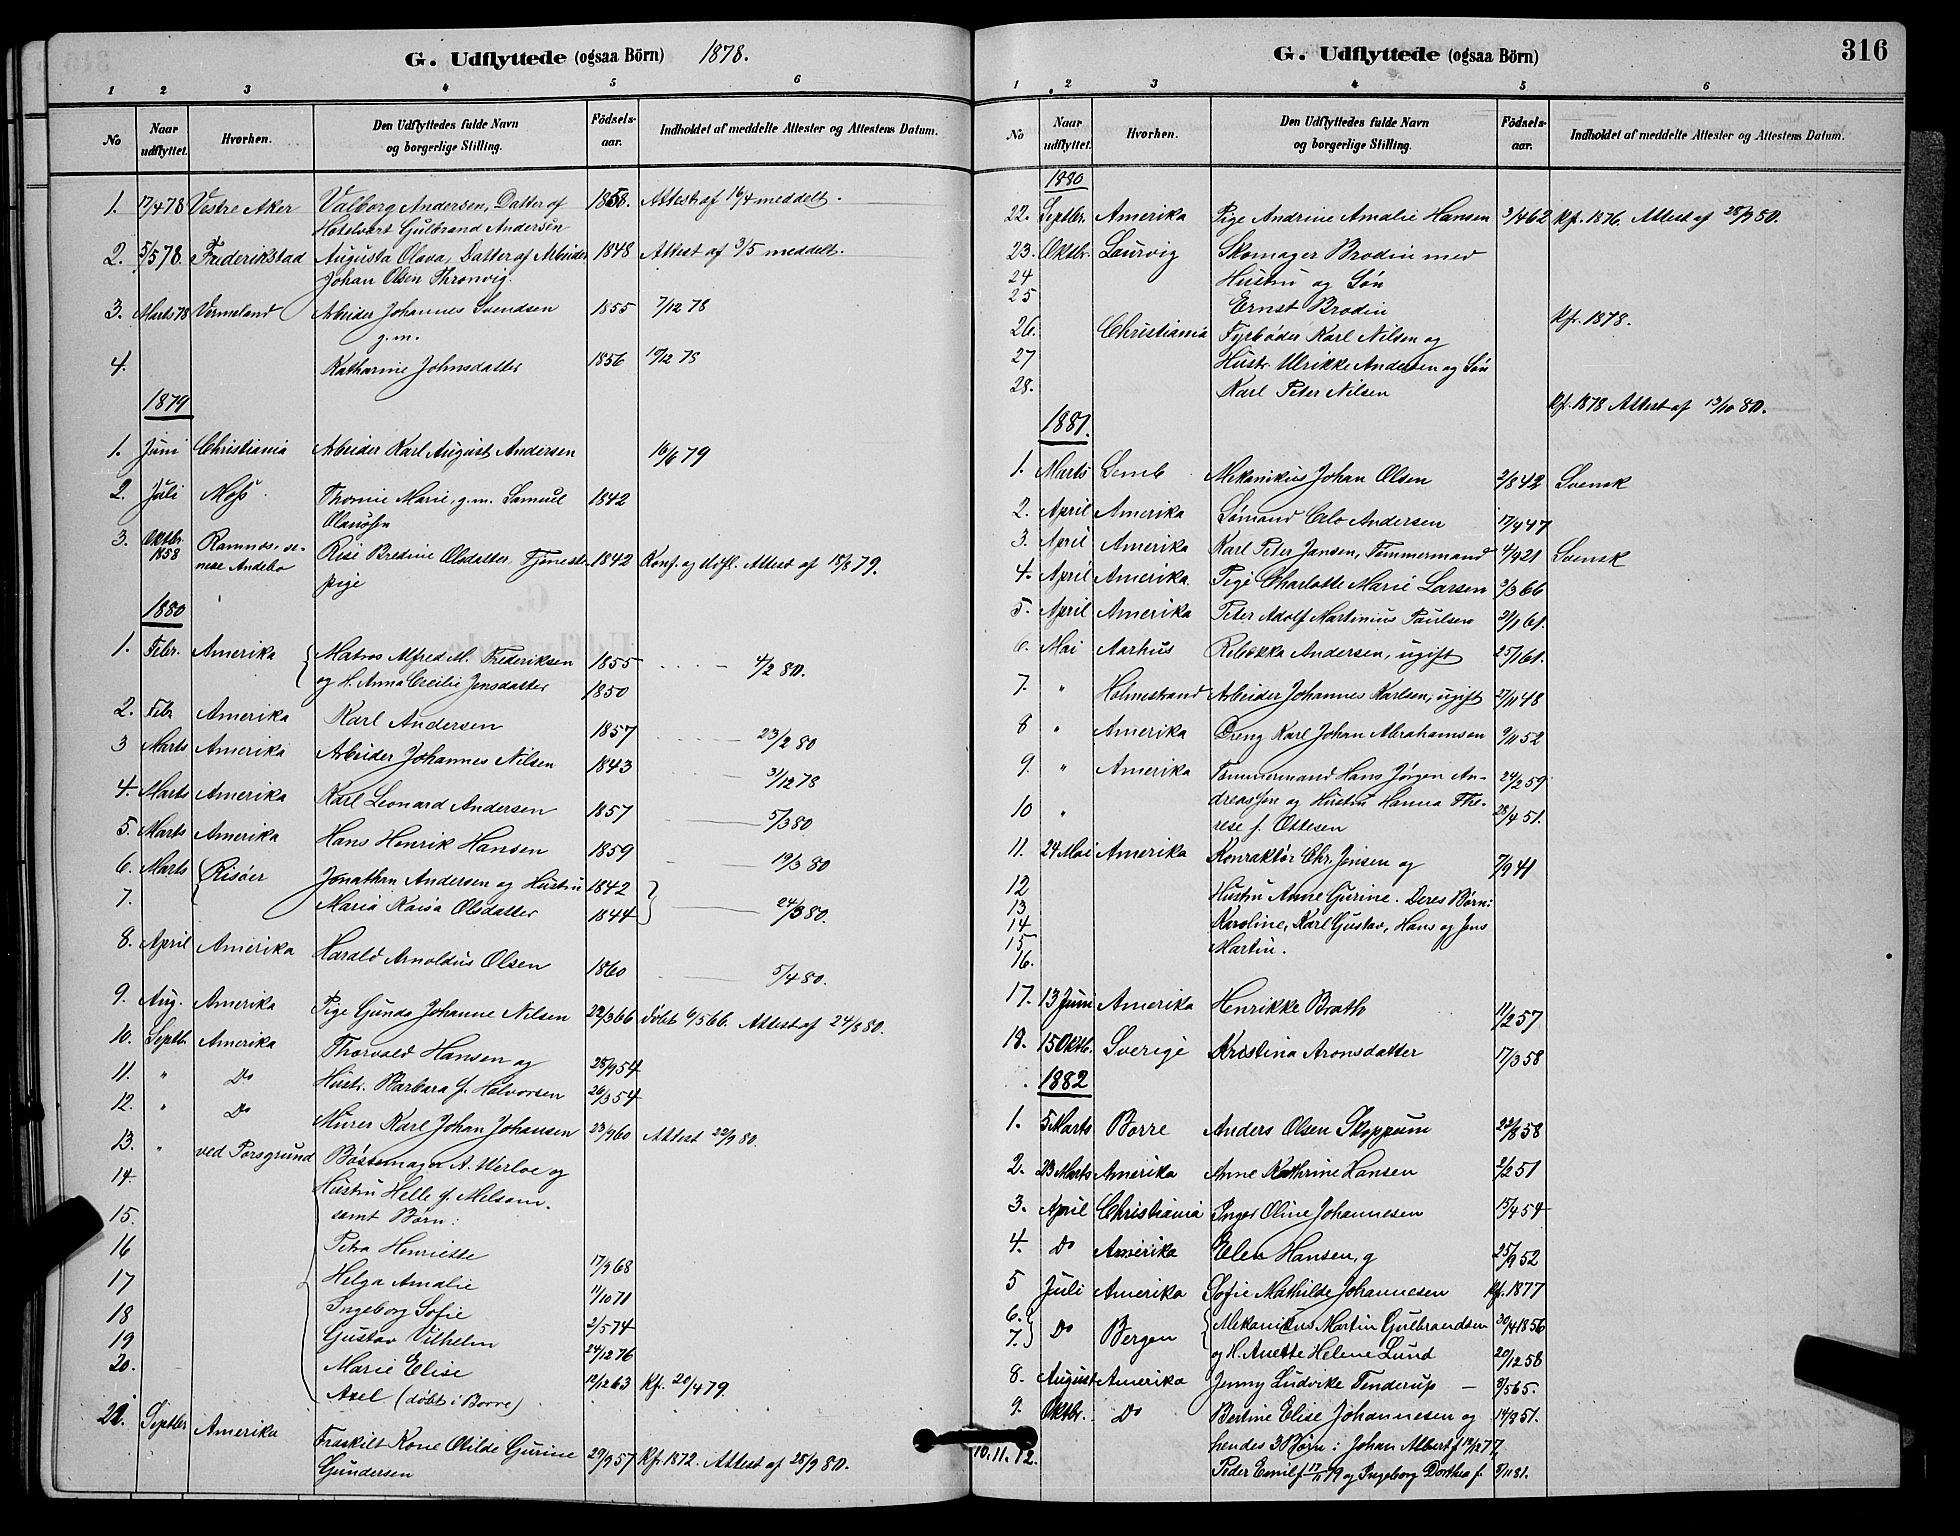 G. Udflyttede (ogsaa Börn) 1878.
1 2 3 4 5 6
No Naar udflyttet. Hvorhen. Den Udflyttedes fulde Navn og borgerlige Stilling. Födsels-aar. Indholdet af meddelte Attester og Attestens Datum.
1. 17/4 78 Vestre Aker Valborg Andersen, Datter af 1858. Attest af 16/4 meddelt.
Gulbrand Andersen
2. 5/5 78. Frederikstad Augusta Olava, Datter af Arbeider 1848 Attest af 3/5 meddelt.
Johan Olsen Thronvig.
3. Marts 78 Vermeland Arbeider Johannes Svendsen 1855 7/12 78
g.m.
4. Katharine Johnsdatter 1856 19/12 78
1879
1. Juni Christiania Arbeider Karl August Andersen 16/6 79
2. Juli Moss. Thomine Marie, g.m. Samuel 1842
Olaussen
3. Oktbr. 1858 Ramnæs, senere Andebo Rise Bredine Olsdatter, Tjeneste- 1842 Konf. og Udfl. Attest af 18/8 79.
pige
1880
1. Febr. Amerika Matros Alfred M. Frederiksen 1855 4/2 80.
og H. Anna Cecilie Jensdatter 1850
2. Febr Amerika Karl Andersen 1857 23/2 80
3 Marts Amerika Arbeider Johannes Nilsen 1843 31/12 78
4. Marts Amerika Karl Leonard Andersen 1857 5/3 80
5. Marts Amerika Hans Henrik Hansen 1859 19/3 80
6. Marts Risöer Jonathan Andersen og Hustru 1842
7. Maria Kaisa Olsdatter 1844 24/3 80.
8. April Amerika Harald Arnoldus Olsen 1860 5/4 80.
9. Aug. Amerika Pige Gunda Johanne Nilsen 22/3 66 döbt 6/5 66. Attest af 24/8 80.
10. Septbr. Amerika Thorvald Hansen og 28/9 54
11. " Do Hustr. Barbara f. Halvorsen 26/3 54
12. " Do Murer Karl Johan Johansen 23/9 60 Attest 22/9 80.
13. " ved Porsgrund Böstemager A. Werloe og
14. Hustru Helle f. Melsom.
15. samt Børn:
16 Petra Henriette 17/9 68
17 Helga Amalie 11/10 71
18 Ingeborg Sofie 2/5 74
19 Gustav Vilhelm 24/12 76
20. Marie Elise 12/12 63 Kf. 20/4 79.
Axel (döbt i Borre)
21. Septbr Amerika Fraskilt Kone Olilde Gurine 29/9 57 Kf. 1872. Attest af 25/9 80.
Gundersen
G. Udflyttede (ogsaa Börn) 316
1 2 3 4 5 6
No Naar udflyttet. Hvorhen. Den Udflyttedes fulde Navn og borgerlige Stilling. Födsels-aar. Indholdet af meddelte Attester og Attestens Datum.
1880
22. Septbr. Amerika Pige Andrine Amalie Hansen 3/4 62 Kf. 1876. Attest af 28/9 80.
23. Oktbr. Laurvig Skomager Brodin med
24 Hustru og Søn
25 Ernst Brodin Kf. 1878.
26. Christiania Fyrbøder Karl Nilsen og
27 Hustr. Ulrikke Andersen og Søn
28. Karl Peter Nilsen Kf. 1878 Attest af 13/10 80.
1881.
1. Marts Semb Mekanikus Johan Olsen 2/8 42 Svensk
2. April Amerika Sømand Carlo Andersen 17/4 47
3. April Amerika Karl Peter Jansen, Tømmermand 4/9 21 Svensk
4. April Amerika. Pige Charlotte Marie Larsen 3/3 66
5. April Amerika Peter Adolf Martinius Paulsen 21/1 61.
6. Mai Aarhus Rebekka Andersen, ugift 25/1 61.
7. " Holmestrand Arbeider Johannes Karlsen, ugift 27/11 48
8 " Amerika Dreng Karl Johan Abrahamsen 9/11 52
9. " Amerika Tømmermand Hans Jørgen An- 24/2 59
10 " dreassen og Hustru Hanna The- 28/4 51.
rese f. Ottesen
11. 24 Mai Amerika Konraktør Chr. Jensen og 7/9 41
12 Hustru Anne Gurine. Deres Børn:
13
14 Karoline, Karl Gustav, Hans og Jens
15 Martin.
16.
17. 13 Juni Amerika Henrikke Brath 11/2 57
18. 15 Oktb. Sverige Kristina Aronsdatter 17/3 58
1882
1. 5 Marts Borre Anders Olsen Skoppum 22/8 58
2. 23 Marts Amerika Anne Kathrine Hansen 2/2 51
3. April Christiania Inger Oline Johannesen 15/4 54
4. Do Amerika Elen Hansen, g 25/9 52
5 Juli Amerika Sofie Mathilde Johannesen Kf. 1877
6. Do Bergen Mekanicus Martin Gulbrandsen 30/4 1856
7. og H. Anette Helene Lund 20/12 58
8. August Amerika Jenny Ludvike Tenderup — 3/5 65.
9. Oktbr. Do Bertine Elise Johannesen og 14/9 51.
10. 11. 12. hendes 3 Børn: Johan Albert f 12/12 77,
Peder Emil f 17/11 79 og Ingeborg Dorthea f. 8/11 81.